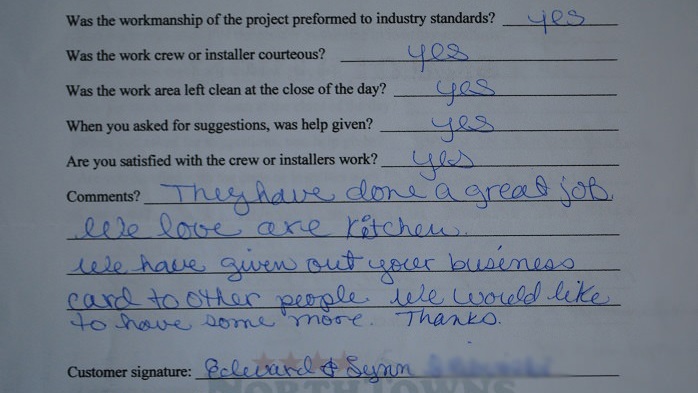 Was the workmanship of the project preformed to industry standards? yes
Was the work crew or installer courteous? yes
Was the work area left clean at the close of the day? yes
When you asked for suggestions, was help given? yes
Are you satisfied with the crew or installers work? yes
Comments? They have done a great job.
We love are kitchen.
We have given out your business
card to other people We would like
to have some more. Thanks.
Customer signature: Edward & Lynn
NORTH TOWNS